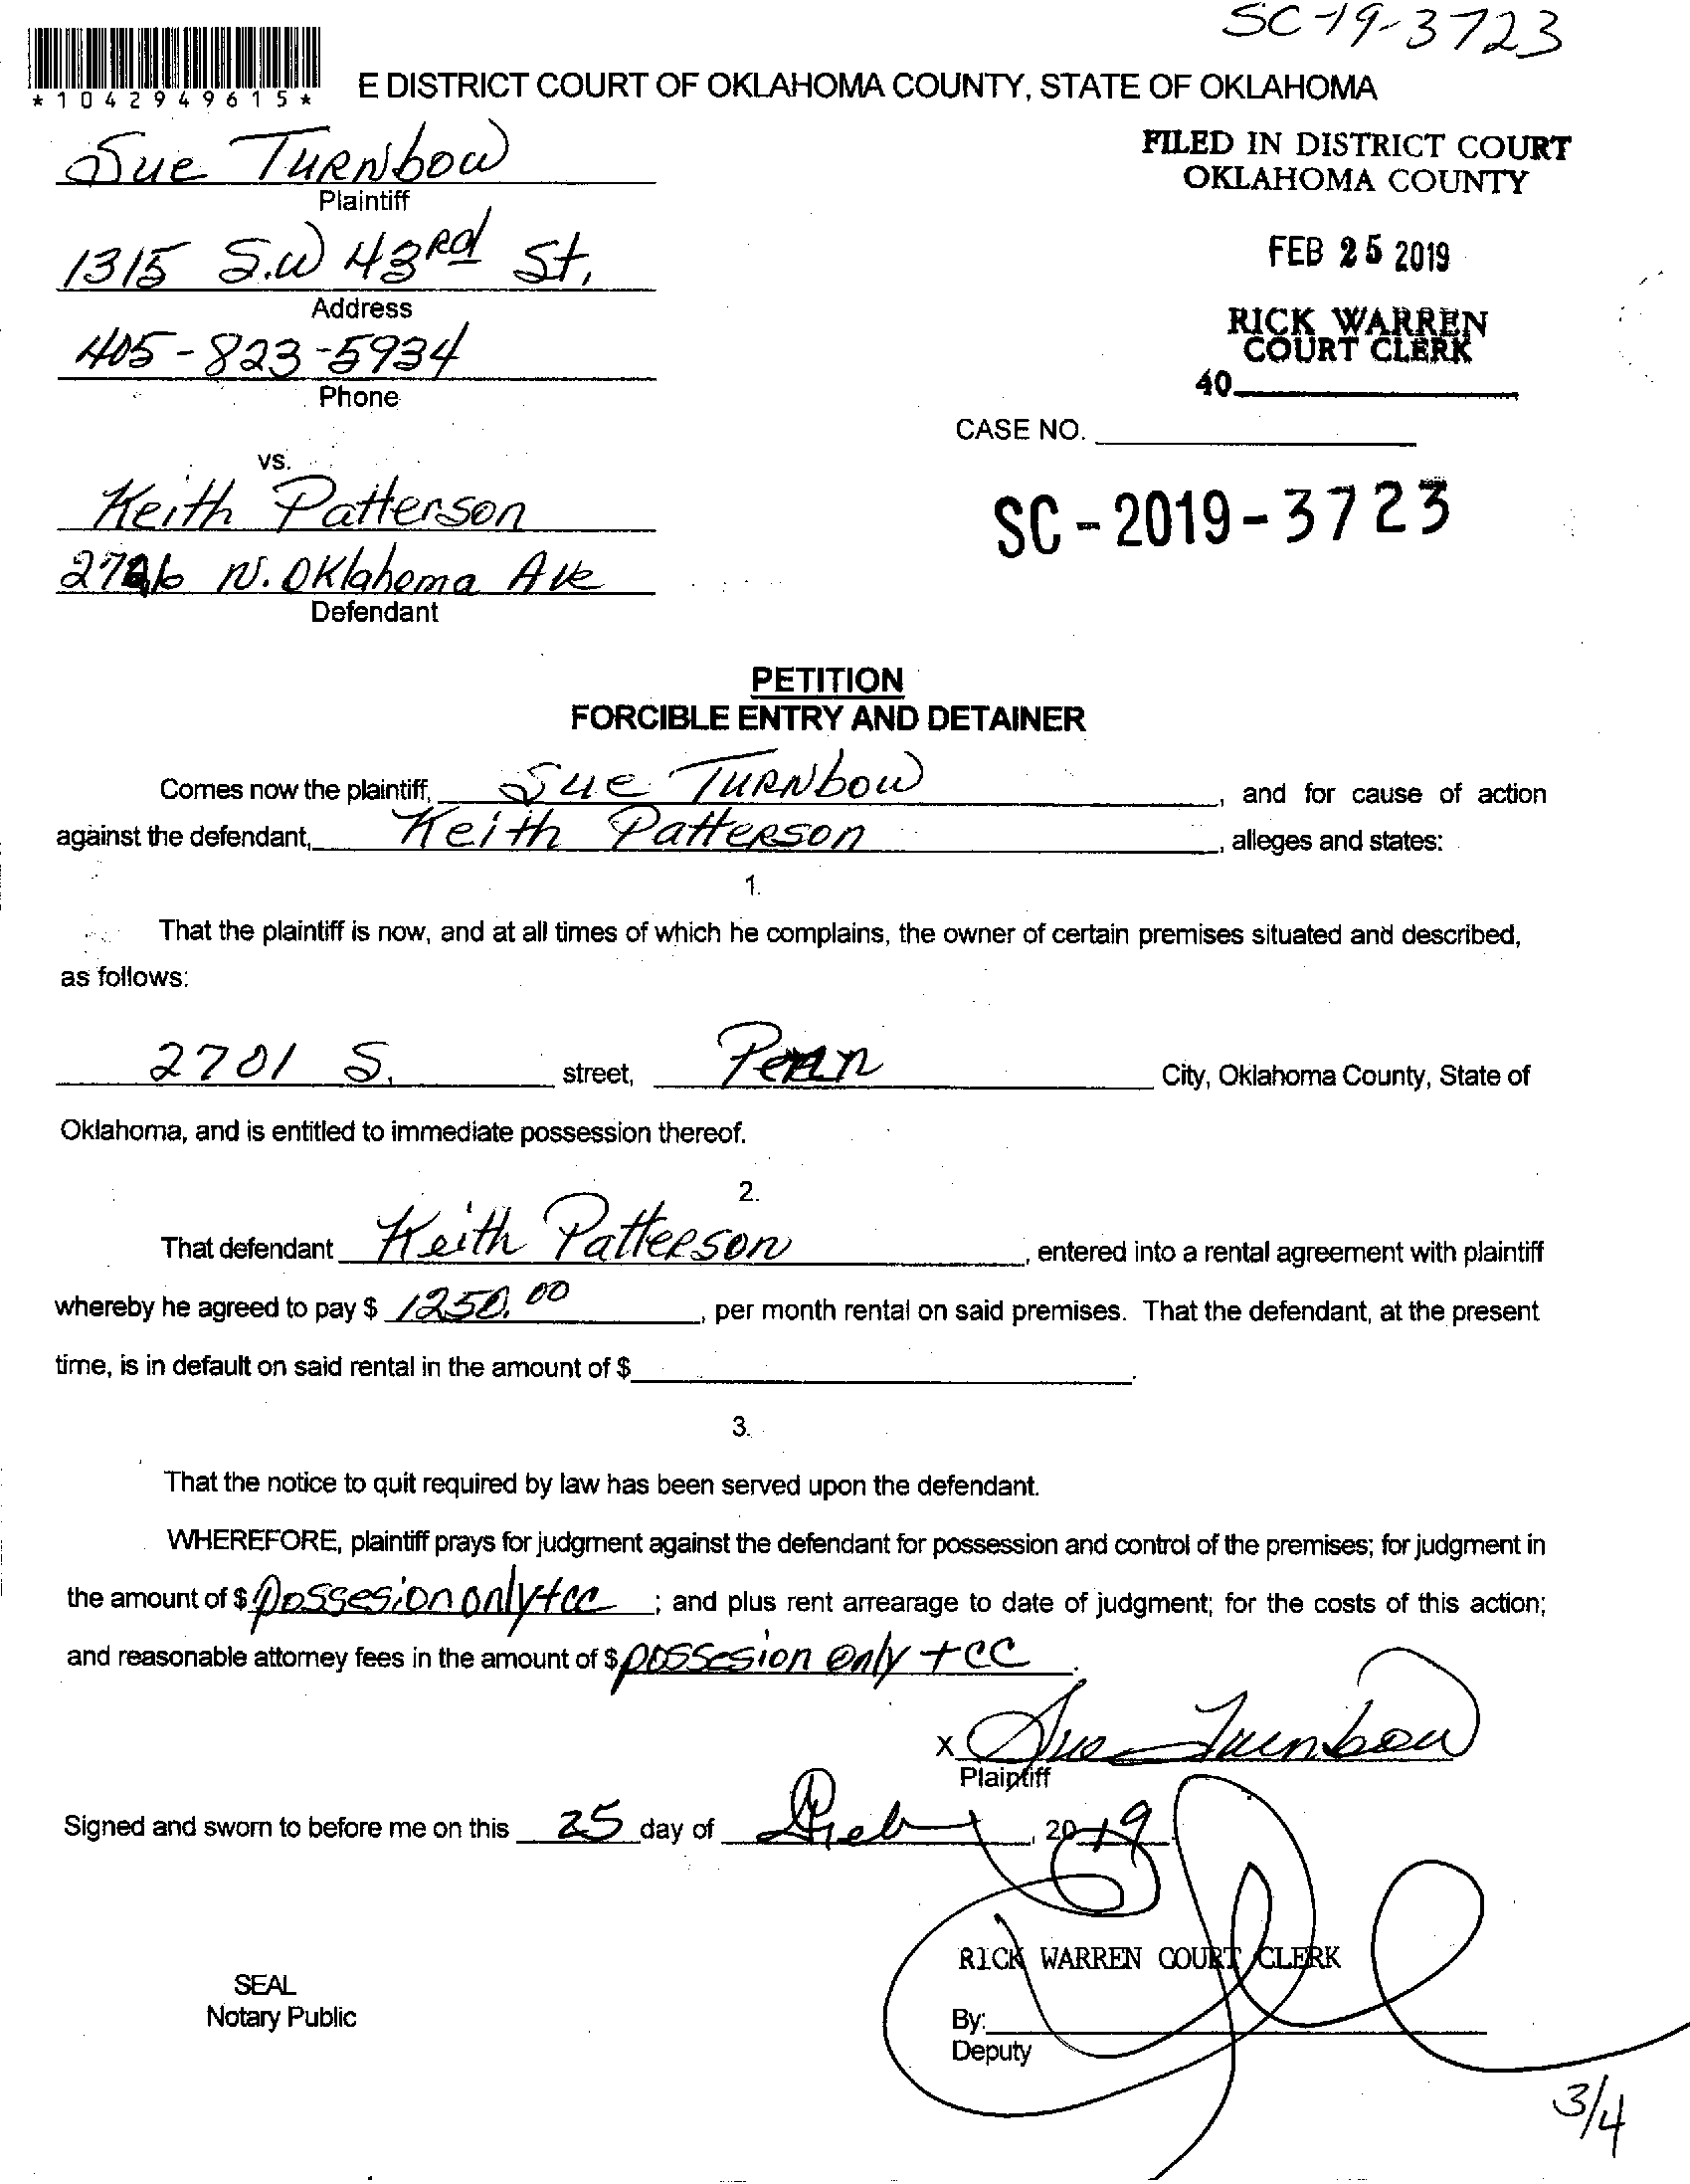 SC-19-3723
*1042949615*
E DISTRICT COURT OF OKLAHOMA COUNTY, STATE OF OKLAHOMA
Sue Turnbow
Plaintiff
FILED IN DISTRICT COURT
OKLAHOMA COUNTY
1315 S.W 43rd St.
Address
FEB 25 2019
405-823-5934
Phone
RICK WARREN
COURT CLERK
40
CASE NO.
vs.
Keith Patterson
SC-2019-3723
N. Oklahoma Ave
Defendant
PETITION
FORCIBLE ENTRY AND DETAINER
Comes now the plaintiff, Sue Turnbow, and for cause of action
against the defendant, Keith Patterson, alleges and states:
1.
That the plaintiff is now, and at all times of which he complains, the owner of certain premises situated and described,
as follows:
2701 S. street, Penn City, Oklahoma County, State of
Oklahoma, and is entitled to immediate possession thereof.
2.
That defendant Keith Patterson, entered into a rental agreement with plaintiff
whereby he agreed to pay $ 1250.00, per month rental on said premises. That the defendant, at the present
time, is in default on said rental in the amount of $ .
3.
That the notice to quit required by law has been served upon the defendant.
WHEREFORE, plaintiff prays for judgment against the defendant for possession and control of the premises; for judgment in
the amount of $ Possesion only+cc ; and plus rent arrearage to date of judgment; for the costs of this action;
and reasonable attorney fees in the amount of $ possesion only + cc.
x Sue Turnbow
Plaintiff
Signed and sworn to before me on this 25 day of Feb, 2019.
RICK WARREN COURT CLERK
SEAL
Notary Public
By:
Deputy
3/4